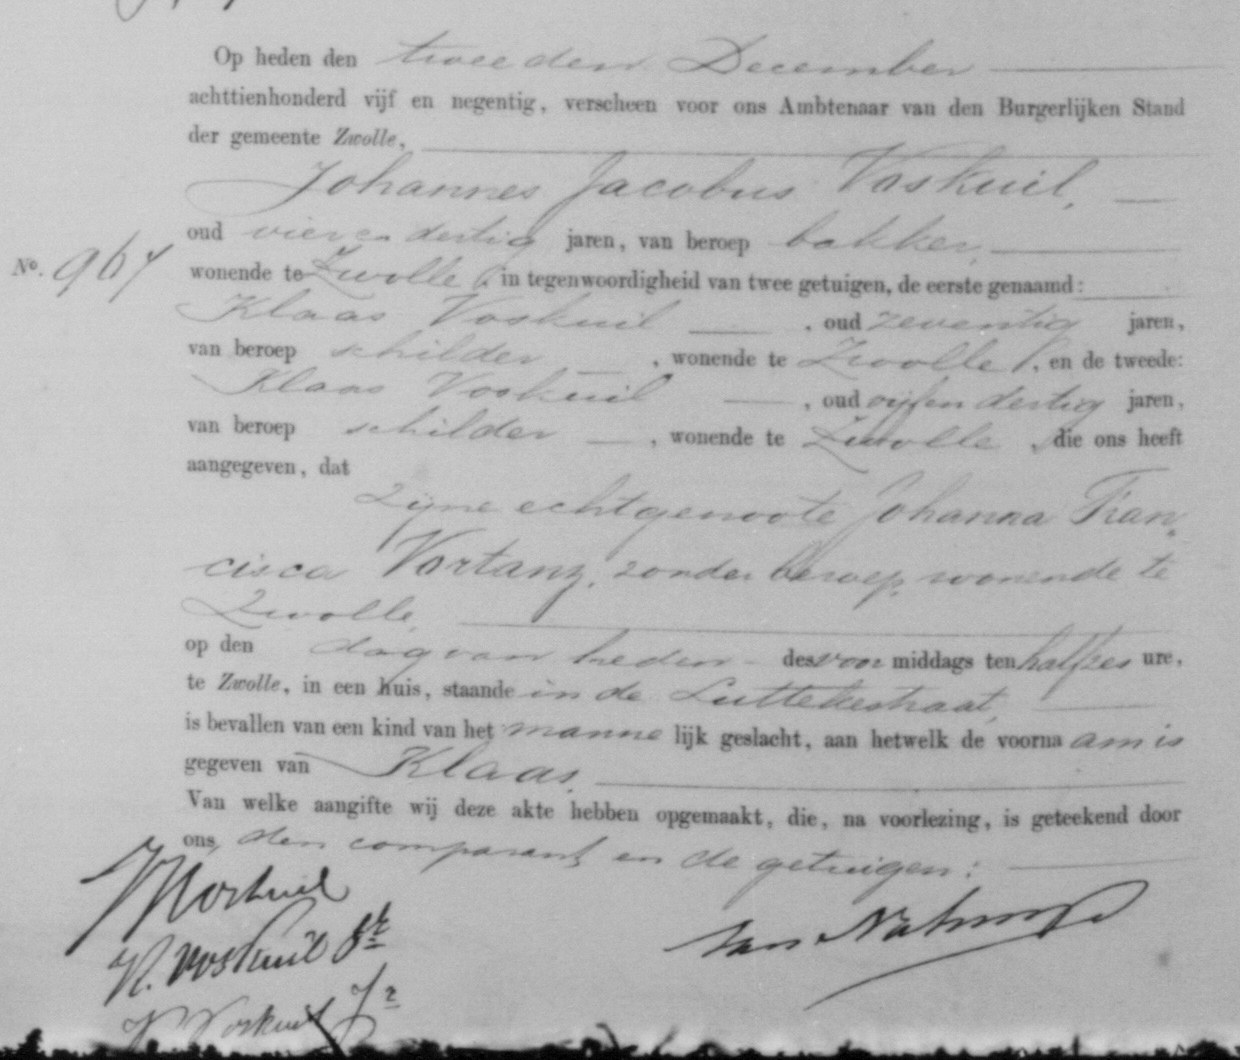 Op heden den tweeden December
achttienhonderd vijf en negentig, verscheen voor ons Ambtenaar van den Burgerlijken Stand
der gemeente Zwolle,
Johannes Jacobus Voskuil,
oud vier en dertig jaren, van beroep bakker,
No. 967 wonende te Zwolle, in tegenwoordigheid van twee getuigen, de eerste genaamd:
Klaas Voskuil, oud zeventig jaren,
van beroep schilder, wonende te Zwolle, en de tweede:
Klaas Voskuil, oud vijf en dertig jaren,
van beroep schilder, wonende te Zwolle, die ons heeft
aangegeven, dat
zijne echtgenoote Johanna Fran-
cisca Vortanz, zonder beroep, wonende te
Zwolle,
op den dag van heden des voor middags ten half zes ure,
te Zwolle, in een huis, staande in de Luttekestraat,
is bevallen van een kind van het manne lijk geslacht, aan hetwelk de voorna am is
gegeven van Klaas.
Van welke aangifte wij deze akte hebben opgemaakt, die, na voorlezing, is geteekend door
ons, den comparant en de getuigen:
Voskuil
K. Voskuil Sr
K Voskuil Jr